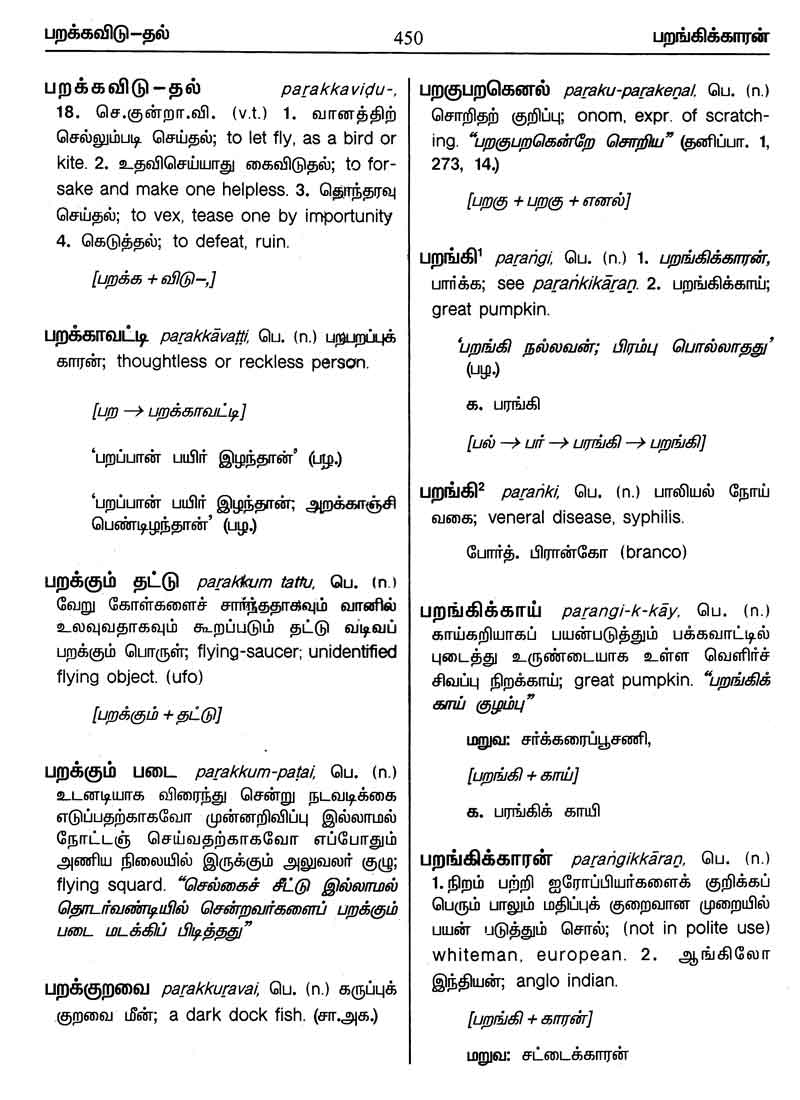 பறக்கவிடு-தல்
450
பறங்கிக்காரன்
பறக்கவிடு-தல் paṟakkaviḍu-,
18. செ.குன்றா.வி. (v.t.) 1. வானத்திற்
செல்லும்படி செய்தல்; to let fly, as a bird or
kite. 2. உதவிசெய்யாது கைவிடுதல்; to for-
sake and make one helpless. 3. தொந்தரவு
செய்தல்; to vex, tease one by importunity
4. கெடுத்தல்; to defeat, ruin.
[பறக்க + விடு-,]
பறக்காவட்டி paṟakkāvaṭṭi, பெ. (n.) பறபறப்புக்
காரன்; thoughtless or reckless person.
[பற → பறக்காவட்டி]
‘பறப்பான் பயிர் இழந்தான்’ (பழ.)
‘பறப்பான் பயிர் இழந்தான்; அறக்காஞ்சி
பெண்டிழந்தான்’ (பழ.)
பறக்கும் தட்டு paṟakkum tattu, பெ. (n.)
வேறு கோள்களைச் சார்ந்ததாகவும் வானில்
உலவுவதாகவும் கூறப்படும் தட்டு வடிவப்
பறக்கும் பொருள்; flying-saucer; unidentified
flying object. (ufo)
[பறக்கும் + தட்டு]
பறக்கும் படை paṟakkum-paṭai, பெ. (n.)
உடனடியாக விரைந்து சென்று நடவடிக்கை
எடுப்பதற்காகவோ முன்னறிவிப்பு இல்லாமல்
நோட்டஞ் செய்வதற்காகவோ எப்போதும்
அணிய நிலையில் இருக்கும் அலுவலர் குழு;
flying squard. “செல்கைச் சீட்டு இல்லாமல்
தொடர்வண்டியில் சென்றவர்களைப் பறக்கும்
படை மடக்கிப் பிடித்தது”
பறக்குறவை paṟakkuṟavai, பெ. (n.) கருப்புக்
குறவை மீன்; a dark dock fish. (சா.அக.)
பறகுபறகெனல் paṟaku-paṟakeṉal, பெ. (n.)
சொறிதற் குறிப்பு; onom, expr. of scratch-
ing. “பறகுபறகென்றே சொறிய” (தனிப்பா. 1,
273, 14.)
[பறகு + பறகு + எனல்]
பறங்கி¹ paṟaṅgi, பெ. (n.) 1. பறங்கிக்காரன்,
பார்க்க; see paṟaṅkikāraṉ. 2. பறங்கிக்காய்;
great pumpkin.
‘பறங்கி நல்லவன்; பிரம்பு பொல்லாதது’
(பழ.)
க. பரங்கி
[பல் → பர் → பரங்கி → பறங்கி]
பறங்கி² paṟaṅki, பெ. (n.) பாலியல் நோய்
வகை; veneral disease, syphilis.
போர்த். பிரான்கோ (branco)
பறங்கிக்காய் paṟangi-k-kāy, பெ. (n.)
காய்கறியாகப் பயன்படுத்தும் பக்கவாட்டில்
புடைத்து உருண்டையாக உள்ள வெளிர்ச்
சிவப்பு நிறக்காய்; great pumpkin. “பறங்கிக்
காய் குழம்பு”
மறுவ: சர்க்கரைப்பூசணி,
[பறங்கி + காய்]
க. பரங்கிக் காயி
பறங்கிக்காரன் paṟaṅgikkāraṉ, பெ. (n.)
1. நிறம் பற்றி ஐரோப்பியர்களைக் குறிக்கப்
பெரும் பாலும் மதிப்புக் குறைவான முறையில்
பயன் படுத்தும் சொல்; (not in polite use)
whiteman, european. 2. ஆங்கிலோ
இந்தியன்; anglo indian.
[பறங்கி + காரன்]
மறுவ: சட்டைக்காரன்